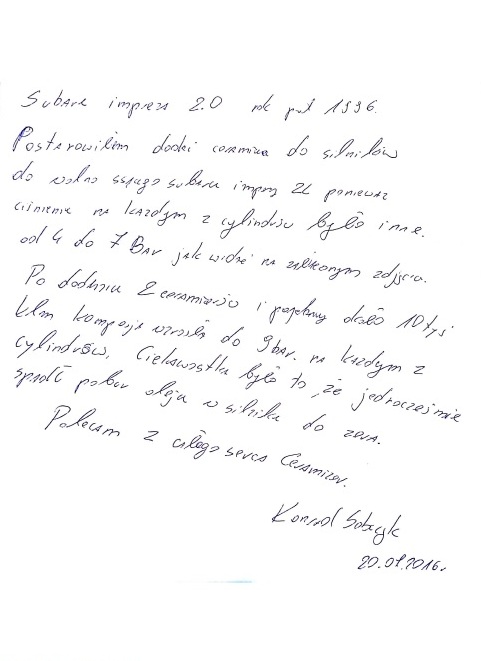 Subaru impreza 2.0 rok prod 1996.
Postanowiłem dodać ceramizer do silników
do wolno ssącego subaru imprezy 2L ponieważ
ciśnienie na każdym z cylindrów było inne.
od 4 do 7 Bar jak widać na załączonym zdjęciu.
Po dodaniu 2 ceramizerów i przejechaniu około 10 tyś
klm kompresja wzrosła do 9 bar. na każdym z
cylindrów. Ciekawostką było to, że jednocześnie
spadł pobór oleju w silniku do zera.
Polecam z całego serca Ceramizer.
Konrad Sobczyk
20.01.2016r.